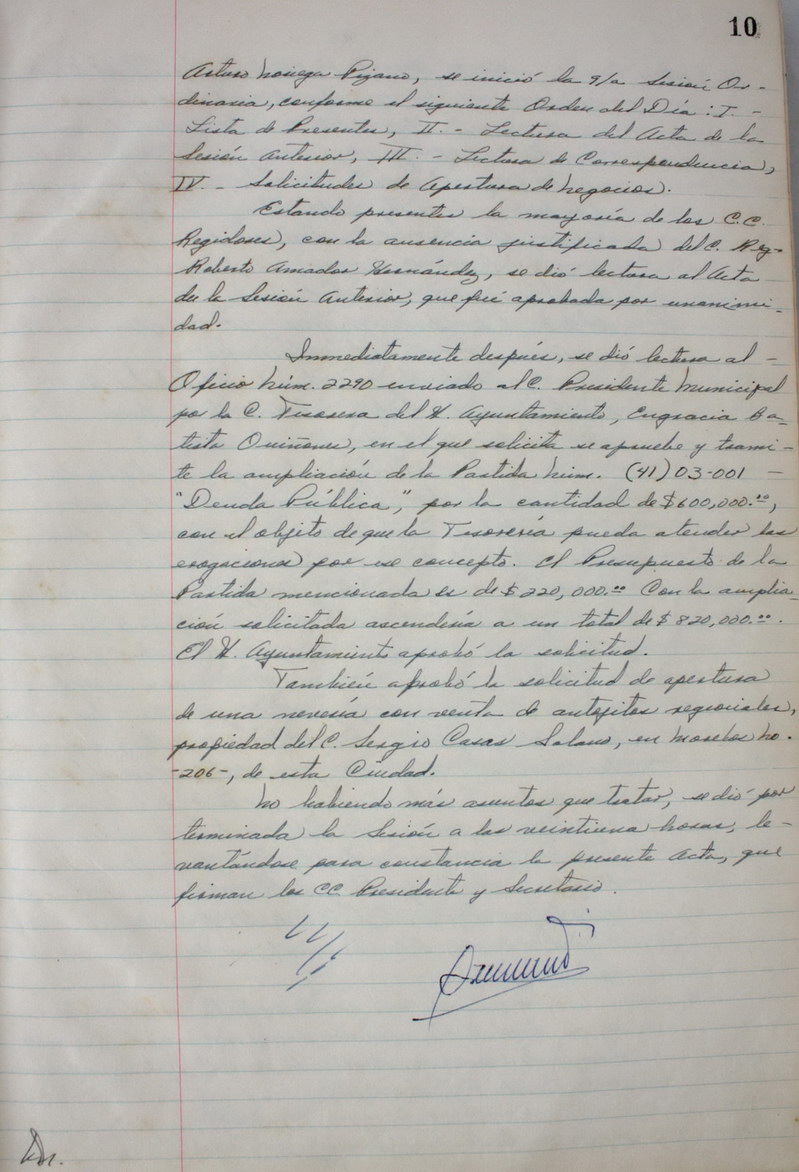 10
Arturo Noriega Pizano, se inició la 9/a Sesión Or-
dinaria, conforme el siguiente Orden del Día: I.-
Lista de Presentes, II.- Lectura del Acta de la
Sesión Anterior, III.- Lectura de Correspondencia,
IV.- Solicitudes de Apertura de Negocios.
Estando presentes la mayoría de los C.C.
Regidores, con la ausencia justificada del C. Reg.
Roberto Amador Hernández, se dió lectura al Acta
de la Sesión Anterior, que fué aprobada por unanimi-
dad.
Inmediatamente después, se dió lectura al -
Oficio Núm. 2290 enviado al C. Presidente Municipal
por la C. Tesorera del H. Ayuntamiento, Engracia Ba-
tista Quiñones, en el que solicita se apruebe y trami-
te la ampliación de la Partida Núm. (41) 03-001 -
"Deuda Pública", por la cantidad de $600,000.00,
con el objeto de que la Tesorería pueda atender las
erogaciones por ese concepto. El Presupuesto de la
Partida mencionada es de $220,000.00 Con la amplia-
ción solicitada ascendería a un total de $820,000.00.
El H. Ayuntamiento aprobó la solicitud.
También aprobó la solicitud de apertura
de una nevería con venta de antojitos regionales,
propiedad del C. Sergio Casas Solano, en Morelos No.
-206-, de esta Ciudad.
No habiendo más asuntos que tratar, se dió por
terminada la Sesión a las veintiuna horas, le-
vantándose para constancia la presente Acta, que
firman los CC. Presidente y Secretario.